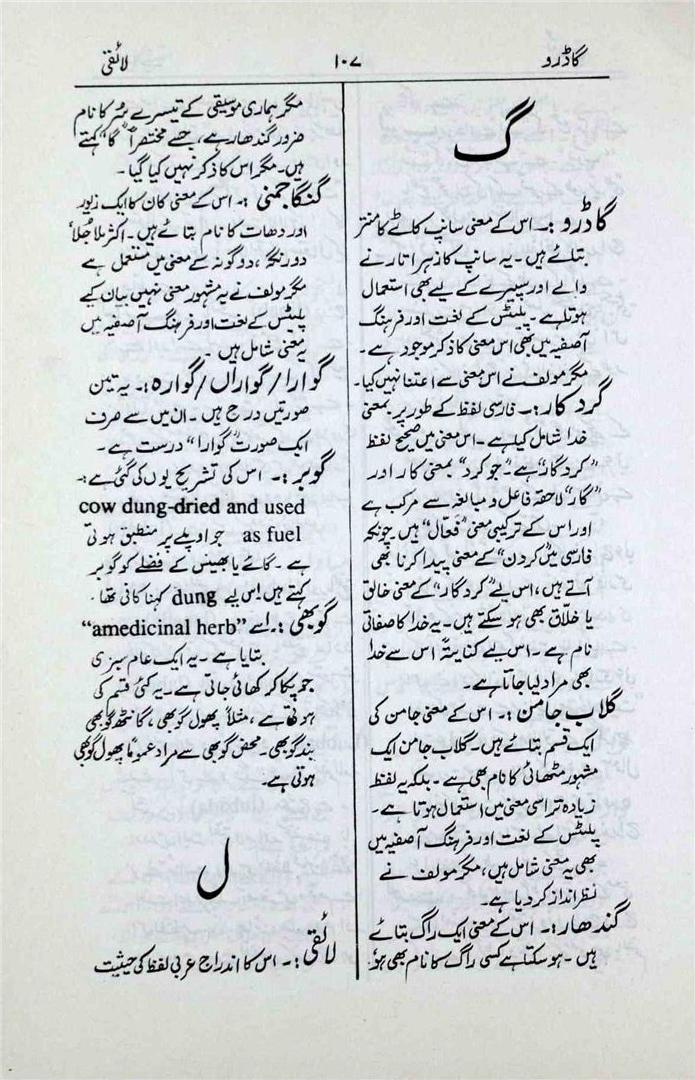 گاڈرو
۱۰۷
لائقی
گ
گاڈرو :۔ اس کے معنی سانپ کاٹے کا منتر
بتائے ہیں۔ یہ سانپ کا زہر اتارنے
والے اور سپیرے کے لیے بھی استعمال
ہوتا ہے۔ پلیٹس کے لغت اور فرہنگ
آصفیہ میں بھی اس معنی کا ذکر موجود ہے۔
مگر مولف نے اس معنی سے اعتنا نہیں کیا۔
گردکار :۔ فارسی لفظ کے طور پر بمعنی
خدا شامل کیا ہے۔ اس معنی میں صحیح لفظ
”کردگار“ ہے۔ جو کرد“ بمعنی کار اور
”گار“ لاحقہ فاعل و مبالغہ سے مرکب ہے
اور اس کے ترکیبی معنی ”فعال“ ہیں چونکہ
فارسی میں ”کردن“ کے معنی پیدا کرنا بھی
آتے ہیں، اس لیے ”کردگار“ کے معنی خالق
یا خلاق بھی ہو سکتے ہیں۔ یہ خدا کا صفاتی
نام ہے۔ اس لیے کنایتہً اس سے خدا
بھی مراد لیا جاتا ہے۔
گلاب جامن :۔ اس کے معنی جامن کی
ایک قسم بتائے ہیں۔ گلاب جامن ایک
مشہور مٹھائی کا نام بھی ہے۔ بلکہ یہ لفظ
زیادہ تر اسی معنی میں استعمال ہوتا ہے۔
پلیٹس کے لغت اور فرہنگ آصفیہ میں
بھی یہ معنی شامل ہیں، مگر مولف نے
نظر انداز کر دیا ہے۔
گندھار :۔ اس کے معنی ایک راگ بتائے
ہیں۔ ہو سکتا ہے کسی راگ کا نام بھی ہو،
مگر ہماری موسیقی کے تیسرے سُر کا نام
ضرور گندھار ہے، جسے مختصراً ”گا“ کہتے
ہیں۔ مگر اس کا ذکر نہیں کیا گیا۔
گنگا جمنی :۔ اس کے معنی کان کا ایک زیور
اور دھات کا نام بتائے ہیں۔ اکثر ملا جُلا
دو رنگہ، دوگونہ کے معنی میں مستعمل ہے
مگر مولف نے یہ مشہور معنی نہیں بیان کیے
پلیٹس کے لغت اور فرہنگ آصفیہ میں
یہ معنی شامل ہیں۔
گوارا/گواراں/گوارہ :۔ یہ تین
صورتیں درج ہیں۔ ان میں سے صرف
ایک صورت ”گوارا“ درست ہے۔
گوبر :۔ اس کی تشریح یوں کی گئی ہے :۔
cow dung-dried and used
as fuel جو اوپلے پر منطبق ہوتی
ہے۔ گائے یا بھینس کے فضلے کو گوبر
کہتے ہیں اس لیے dung کہنا کافی تھا۔
گوبھی :۔ اسے “amedicinal herb”
بتایا ہے۔ یہ ایک عام سبزی
جو پکا کر کھائی جاتی ہے۔ یہ کئی قسم کی
ہوتی ہے، مثلاً پھول گوبھی، گانٹھ گوبھی
بند گوبھی۔ محض گوبھی سے مراد عموماً پھول گوبھی
ہوتی ہے۔
ل
لائقی :۔ اس کا اندراج عربی لفظ کی حیثیت